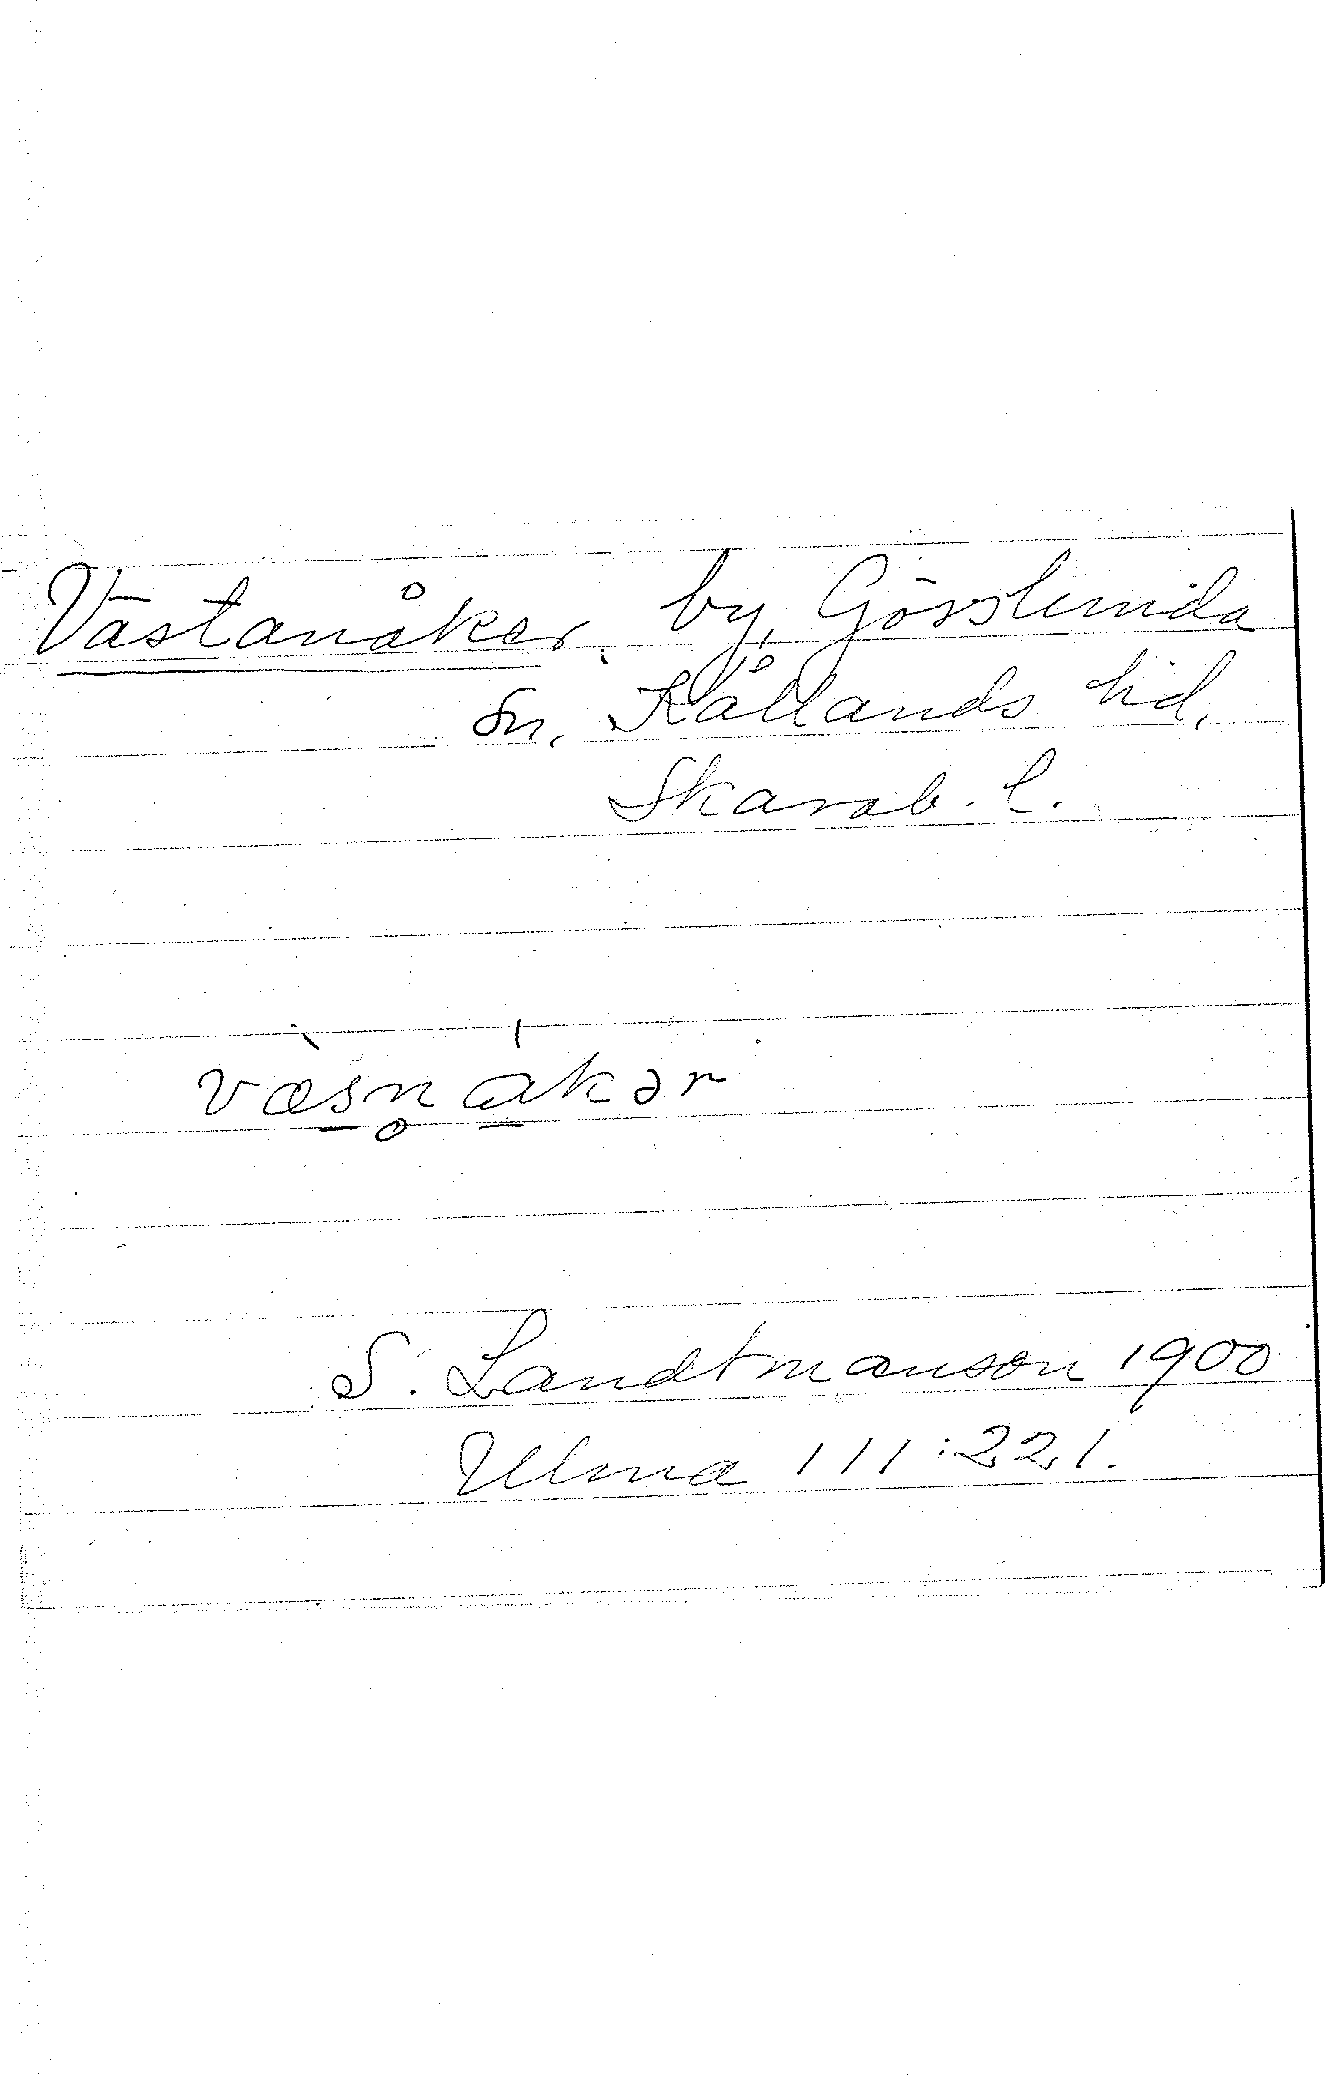 Västanåker, by, Gösslunda
sn, Kållands hd,
Skarab. l.
væsn̥ åkər
S. Landtmanson 1900
Ulma 111:221.